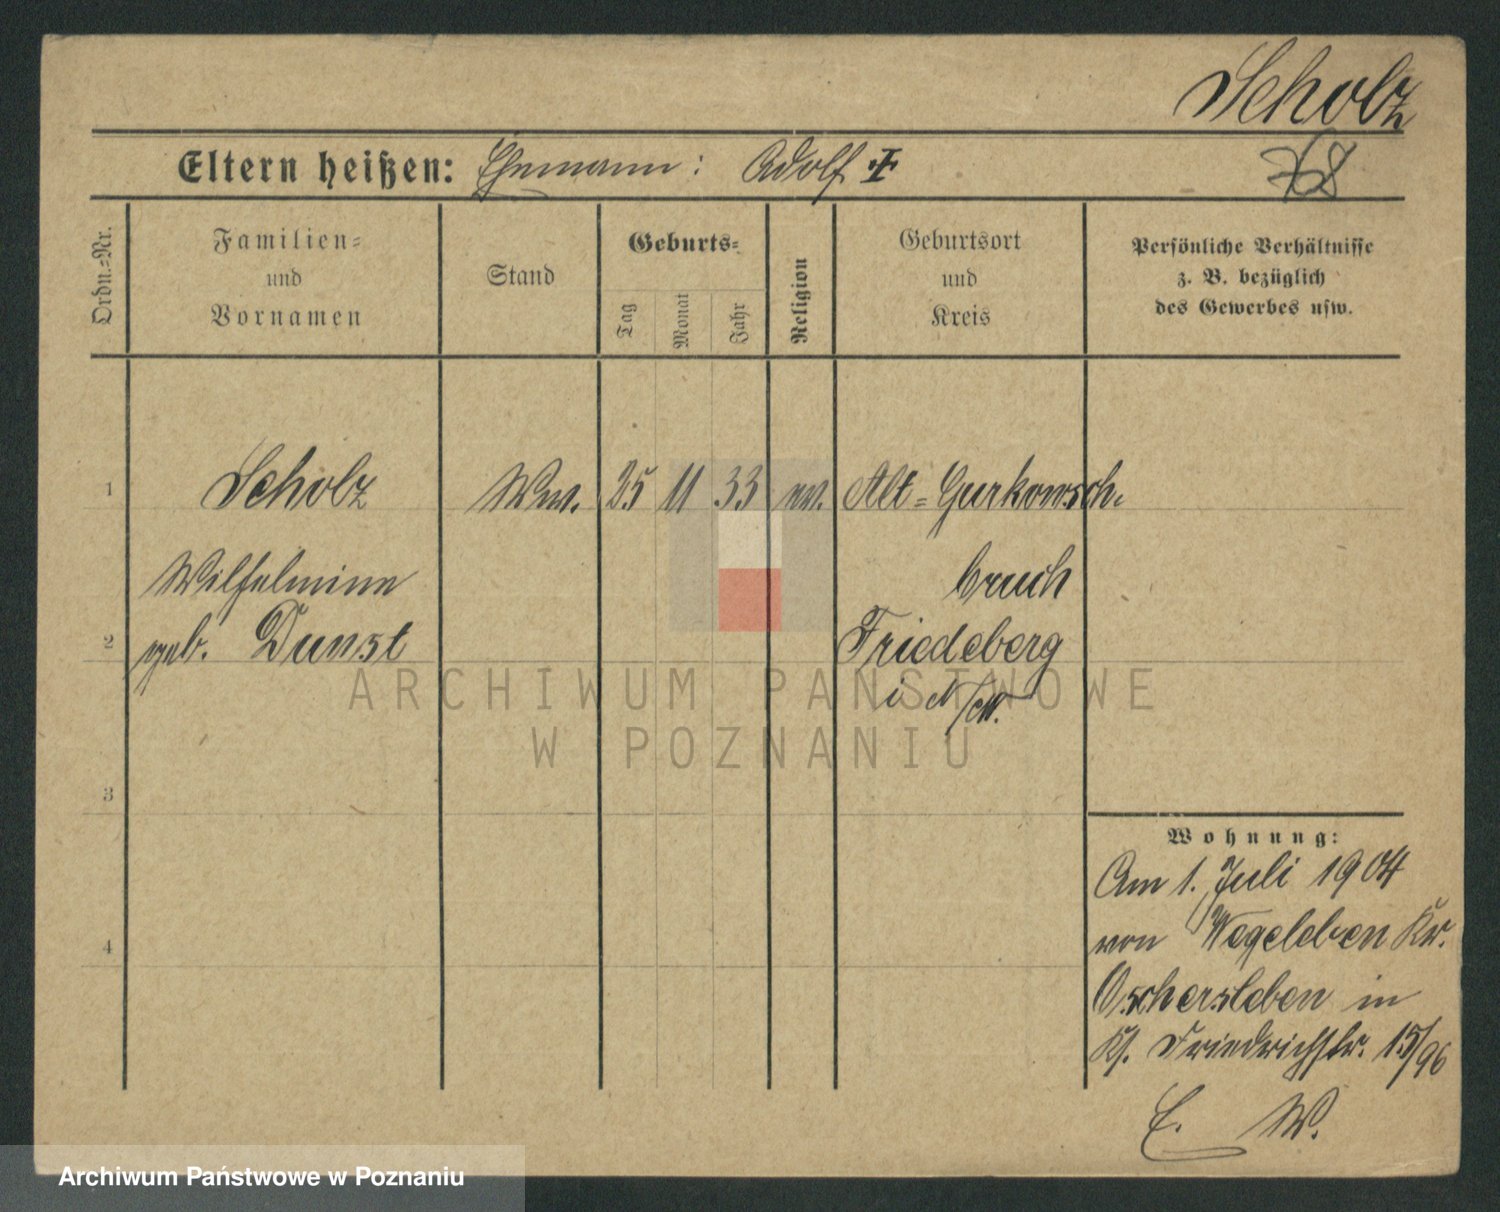 Scholz
Eltern heißen: Ehemann: Adolf
Ordn.=Nr.
Familien=
und
Vornamen
Stand
Geburts=
Tag
Monat
Jahr
Religion
Geburtsort
und
Kreis
Persönliche Verhältnisse
z. B. bezüglich
des Gewerbes usw.
1 Scholz Ww. 25 11 33 ev. Alt=Gurkowsch.
Wilhelmine bruch
2 geb. Dunst Friedeberg
i N/M.
3
4
Wohnung:
Am 1. Juli 1904
von Wegeleben Kr.
Oschersleben in
Friedrichstr. 15/96
E. W.
ARCHIWUM PAŃSTWOWE
W POZNANIU
Archiwum Państwowe w Poznaniu